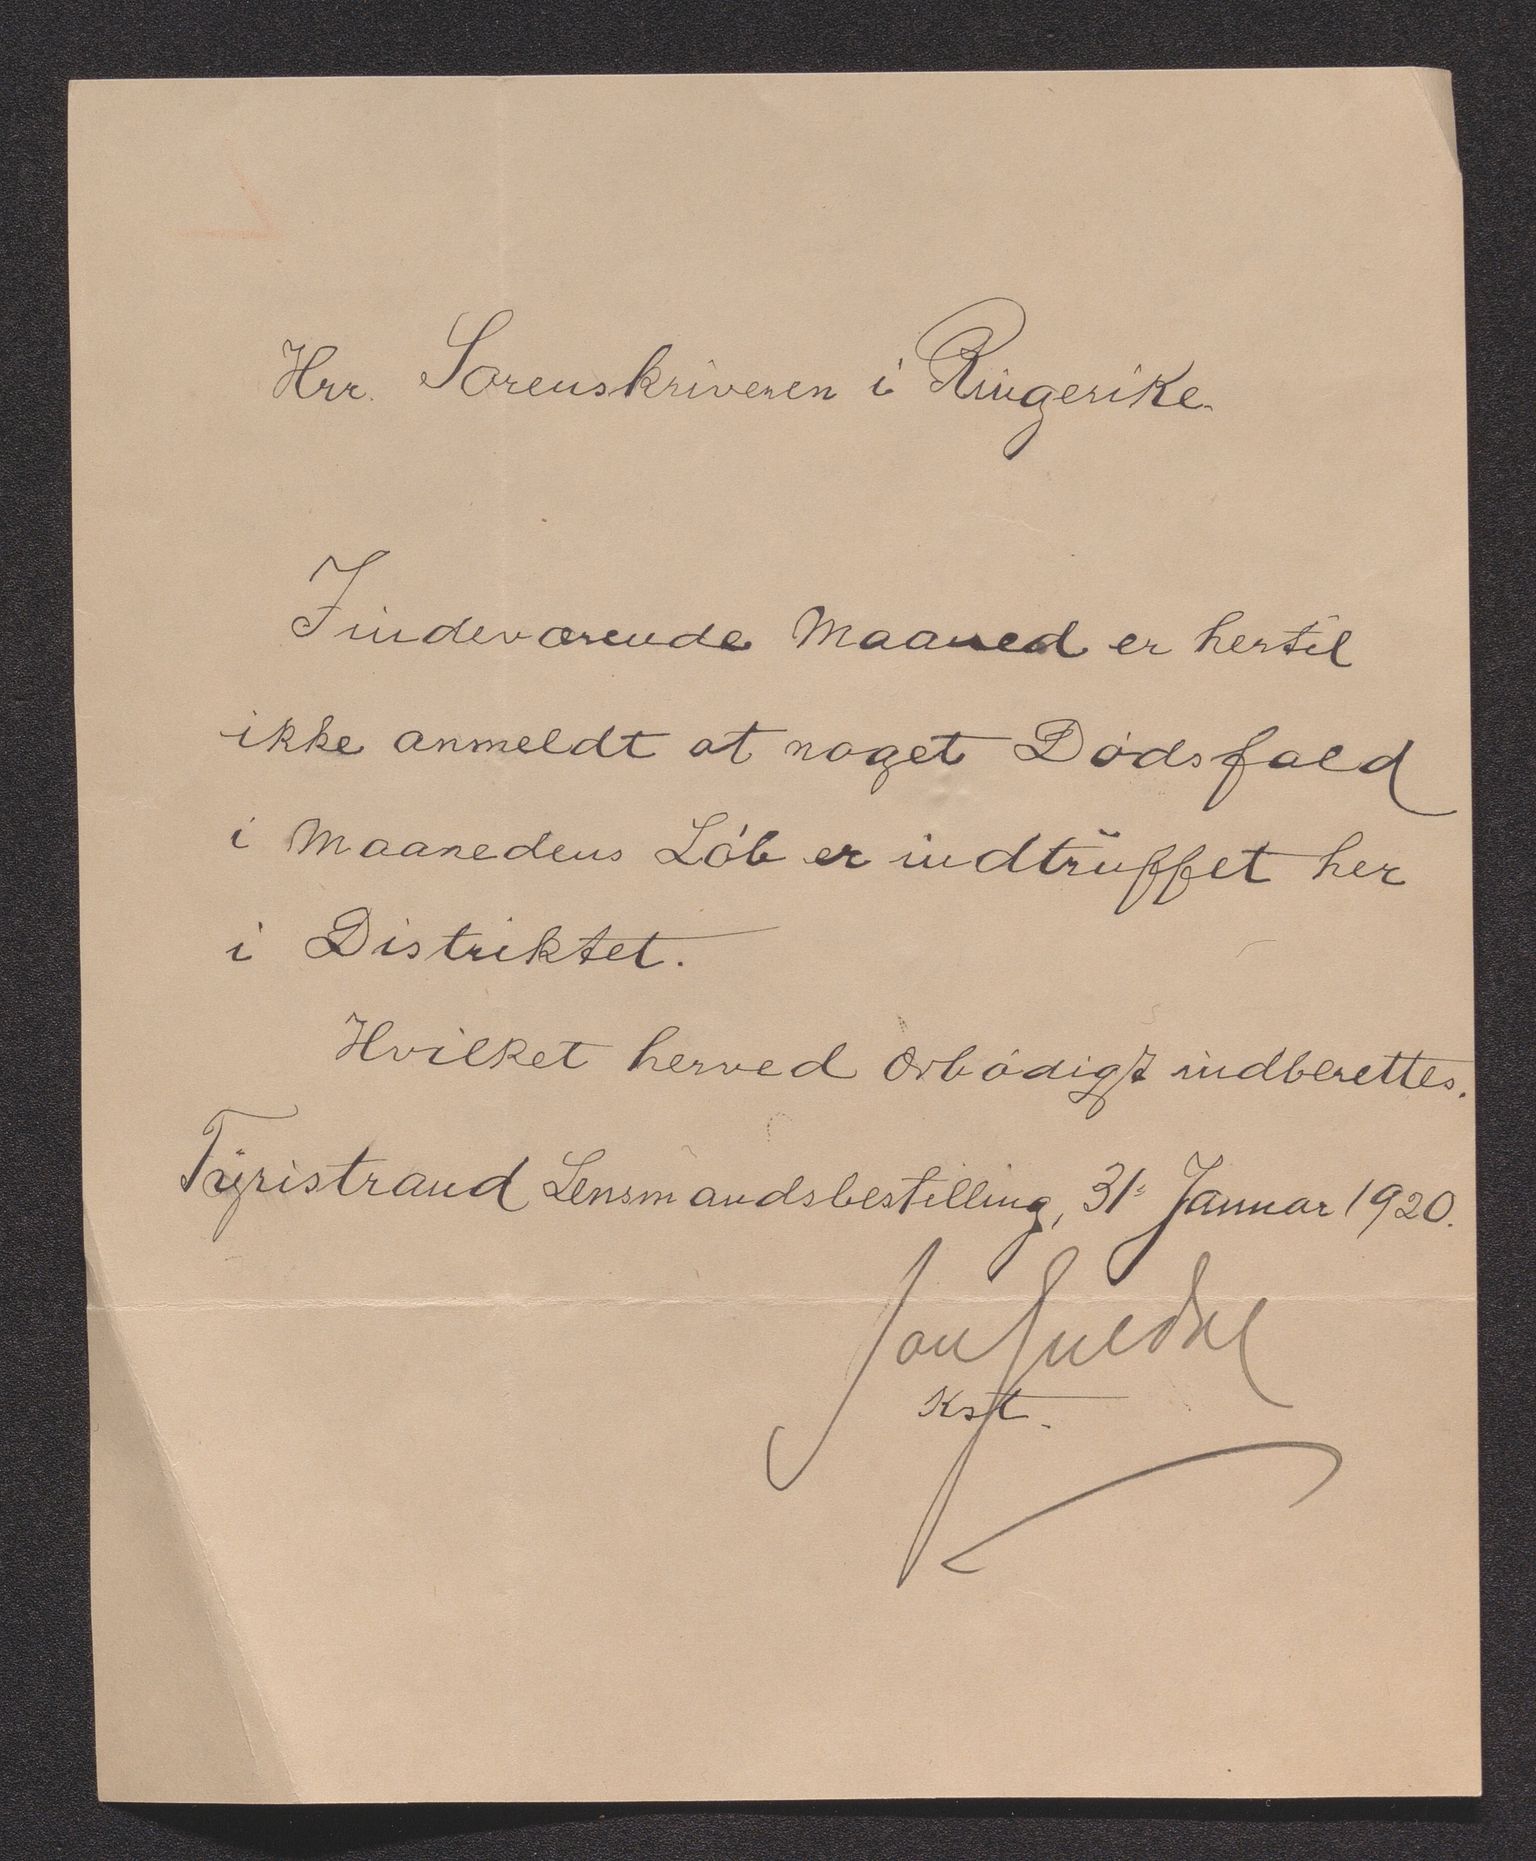 Hrr. Sorenskriveren i Ringerike.
Indeværende Maaned er hertil
ikke anmeldt at noget Dødsfald
i Maanedens Løb er indtruffet her
i Distriktet.
Hvilket herved ærbødigst indberettes.
Tyristrand Lensmandsbestilling, 31. Januar 1920.
Kst.